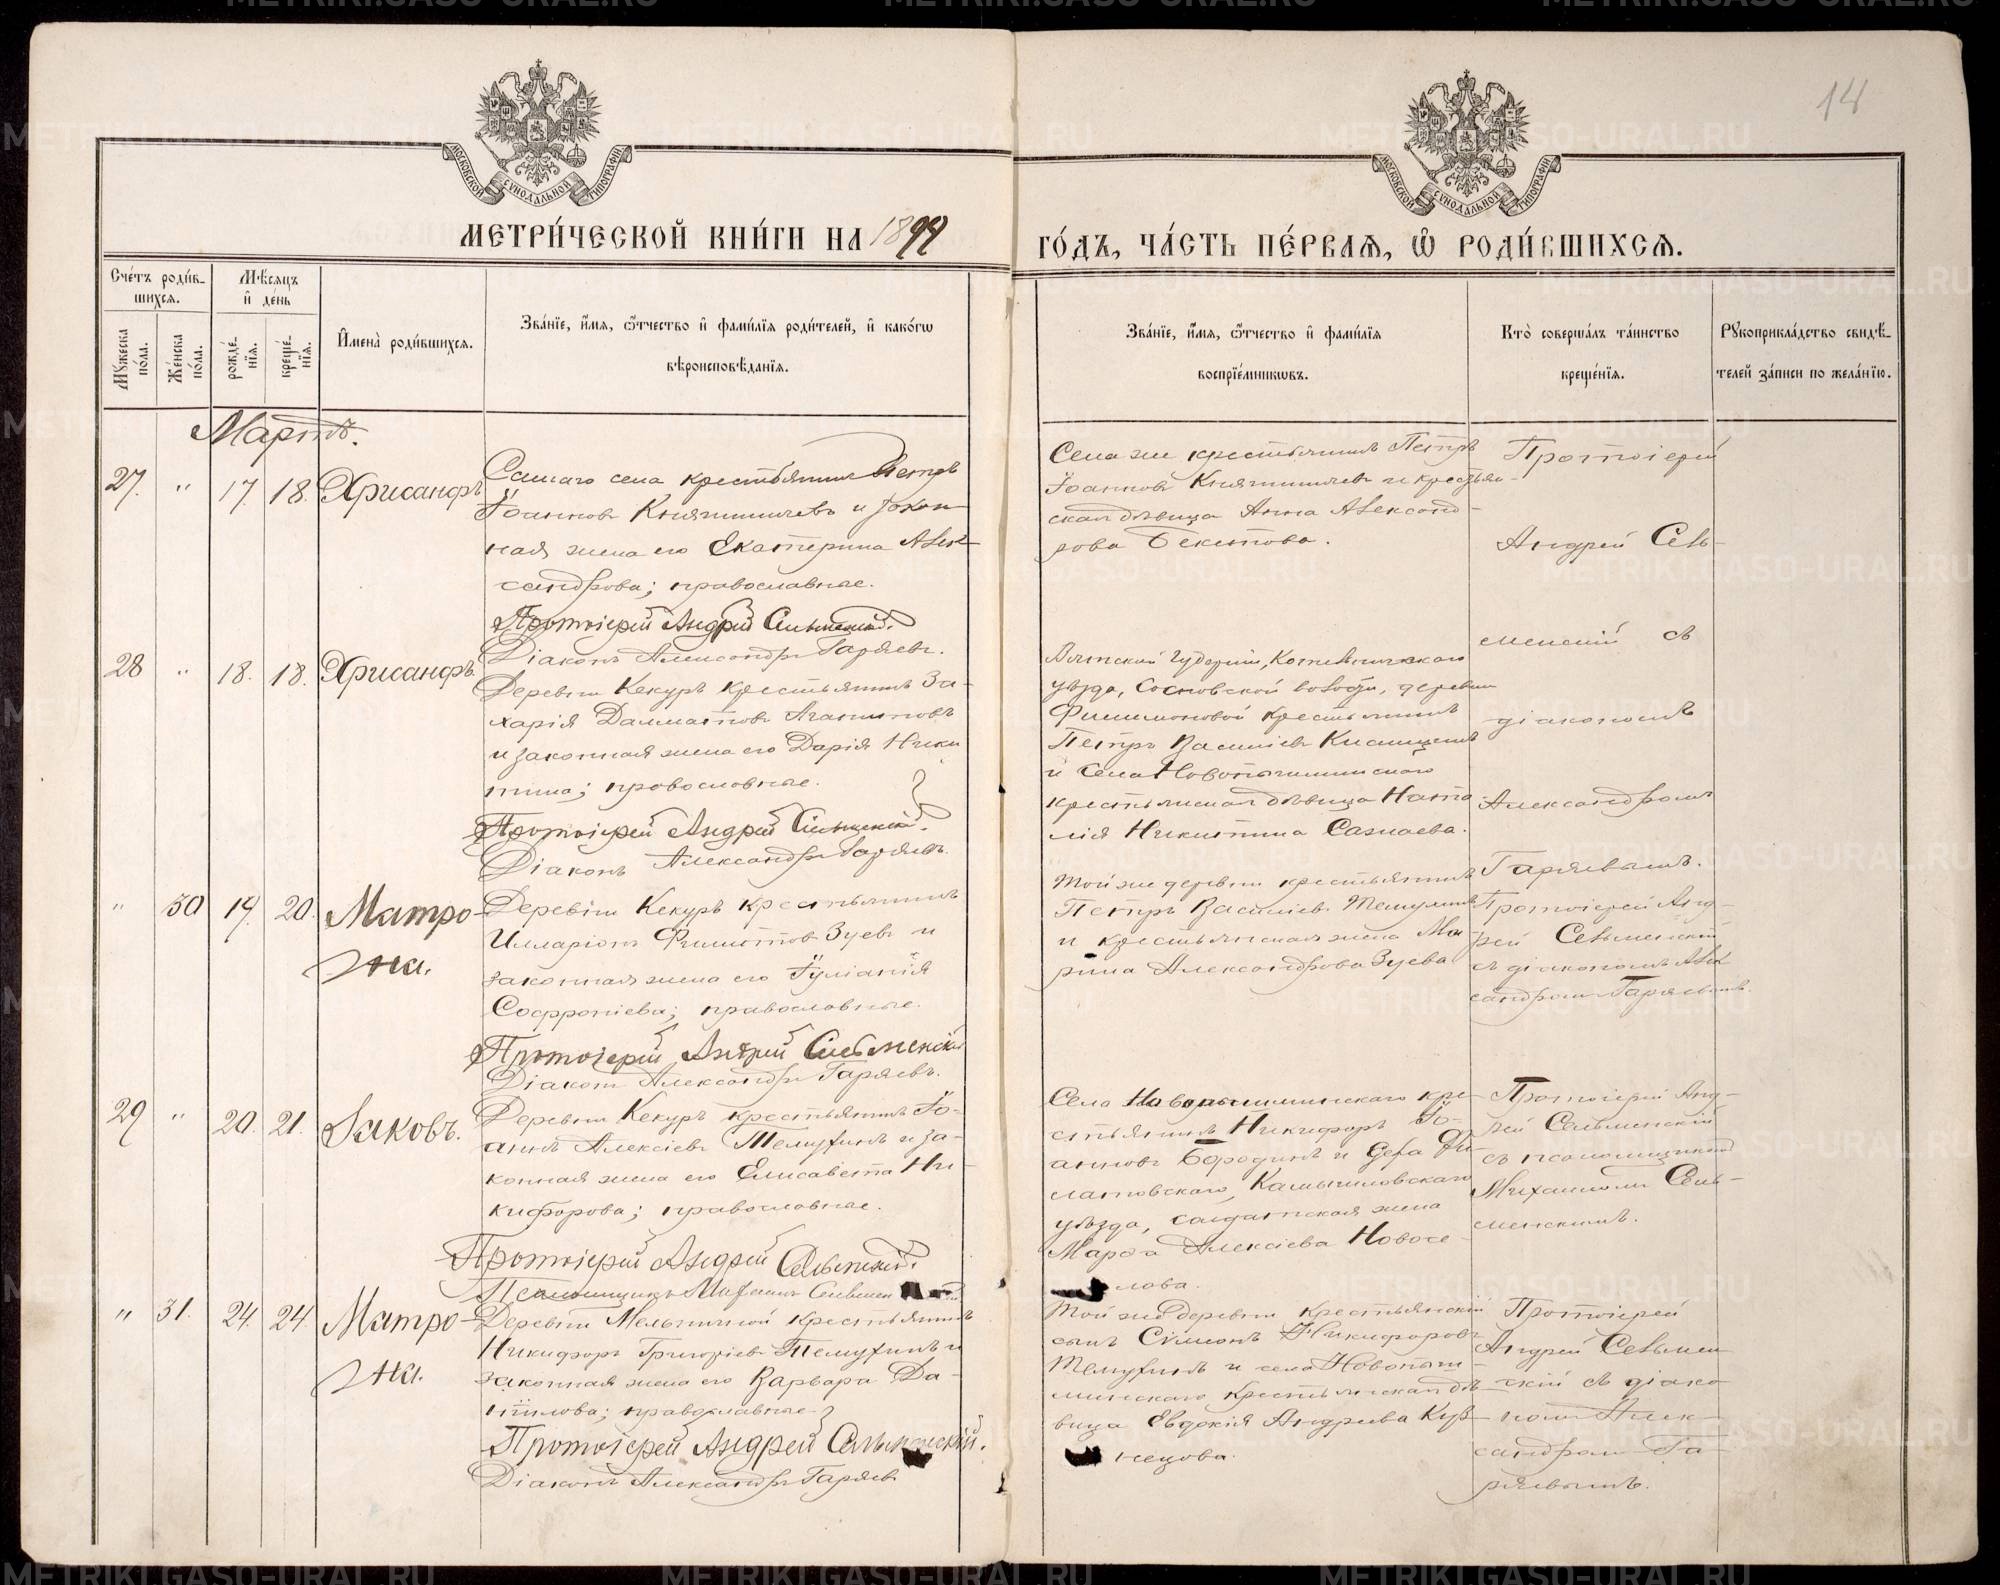 14
МОСКОВСКОЙ СУНОДАЛЬНОЙ ТИПОГРАФІИ
МОСКОВСКОЙ СУНОДАЛЬНОЙ ТИПОГРАФІИ
МЕТРИ́ЧЕСКОЙ КНИ́ГИ НА 1899
ГО́ДЪ, ЧА́СТЬ ПЕ́РВАѦ, Ѡ҆ РОДИ́ВШИХСѦ.
Сче́тъ роди́в-
шихсѧ.
Мꙋ́жеска по́ла.
Же́нска по́ла.
Мѣ́сѧцъ
и҆ де́нь
рожде́-
нїѧ.
креще́-
нїѧ.
И҆мена̀ роди́вшихсѧ.
Зва́нїе, и҆́мѧ, ѻ҆́тчество и҆ фами́лїѧ роди́телей, и҆ како́гѡ
вѣроисповѣ́данїѧ.
Зва́нїе, и҆́мѧ, ѻ҆́тчество и҆ фами́лїѧ
воспрїе́мникѡвъ.
Кто̀ соверша́лъ та́инство
креще́нїѧ.
Рꙋкоприкла́дство свидѣ́-
телей за́писи по жела́нїю.
Мартъ.
27. " 17. 18. Хрисанфъ
Самаго села крестьянинъ Петръ
Іоанновъ Княгиничевъ и закон-
ная жена его Екатерина Алек-
сандрова; православные.
Протоіерей Андрей Сельменскій.
Діаконъ Александръ Гаряевъ.
Села же крестьянинъ Петръ
Іоанновъ Княгиничевъ и крестьян-
ская дѣвица Анна Александ-
рова Бекетова.
Протоіерей
Андрей Сель-
менскій съ
діакономъ
Александромъ
Гаряевымъ.
28 " 18. 18. Хрисанфъ.
Деревни Кекуръ крестьянинъ За-
харія Далматовъ Агапитовъ
и законная жена его Дарія Ники-
тина; православные.
Протоіерей Андрей Сельменскій.
Діаконъ Александръ Гаряевъ.
Вятской губерніи, Котельническаго
уѣзда, Сосновской волости, деревни
Филимоновой крестьянинъ
Петръ Василіевъ
и села Новопышминскаго
крестьянская дѣвица Ната-
лія Никитина Сазнаева.
" 30 19. 20. Матро-
на.
Деревни Кекуръ крестьянинъ
Илларіонъ Филиповъ Зуевъ и
законная жена его Іуліанія
Софроніева; православные.
Протоіерей Андрей Сельменскій
Діаконъ Александръ Гаряевъ.
Той же деревни крестьянинъ
Петръ Василіевъ Темухинъ
и крестьянская жена Ма-
рина Александрова Зуева
Протоіерей Анд-
рей Сельменскій
съ діакономъ Алек-
сандромъ Гаряевымъ.
29 " 20. 21. Іаковъ.
Деревни Кекуръ крестьянинъ Іо-
аннъ Алексіевъ Темухинъ и за-
конная жена его Елисавета Ни-
кифорова; православные.
Протоіерей Андрей Сельменскій.
Псаломщикъ Михаилъ Сельмен
Села Новопышминскаго кре-
стьянинъ Никифоръ Іо-
анновъ Бородинъ и села Фи-
латовскаго, Камышловскаго
уѣзда, солдатская жена
Марфа Алексіева Новосе-
лова.
Протоіерей Анд-
рей Сельменскій
съ псаломщикомъ
Михаиломъ Сель-
менскимъ.
" 31. 24. 24. Матро-
на.
Деревни Мельничной крестьянинъ
Никифоръ Григоріевъ Темухинъ и
законная жена его Варвара Да-
ніилова; православные.
Протоіерей Андрей Сельменскій.
Діаконъ Александръ Гаряевъ
Той же деревни крестьянскій
сынъ Симеонъ Никифоровъ
Темухинъ и села Новопыш-
минскаго крестьянская дѣ-
вица Евдокія Андреева Куз-
нецова.
Протоіерей
Андрей Сельмен-
скій съ діако-
номъ Алек-
сандромъ Га-
ряевымъ.
METRIKI.GASO-URAL.RU